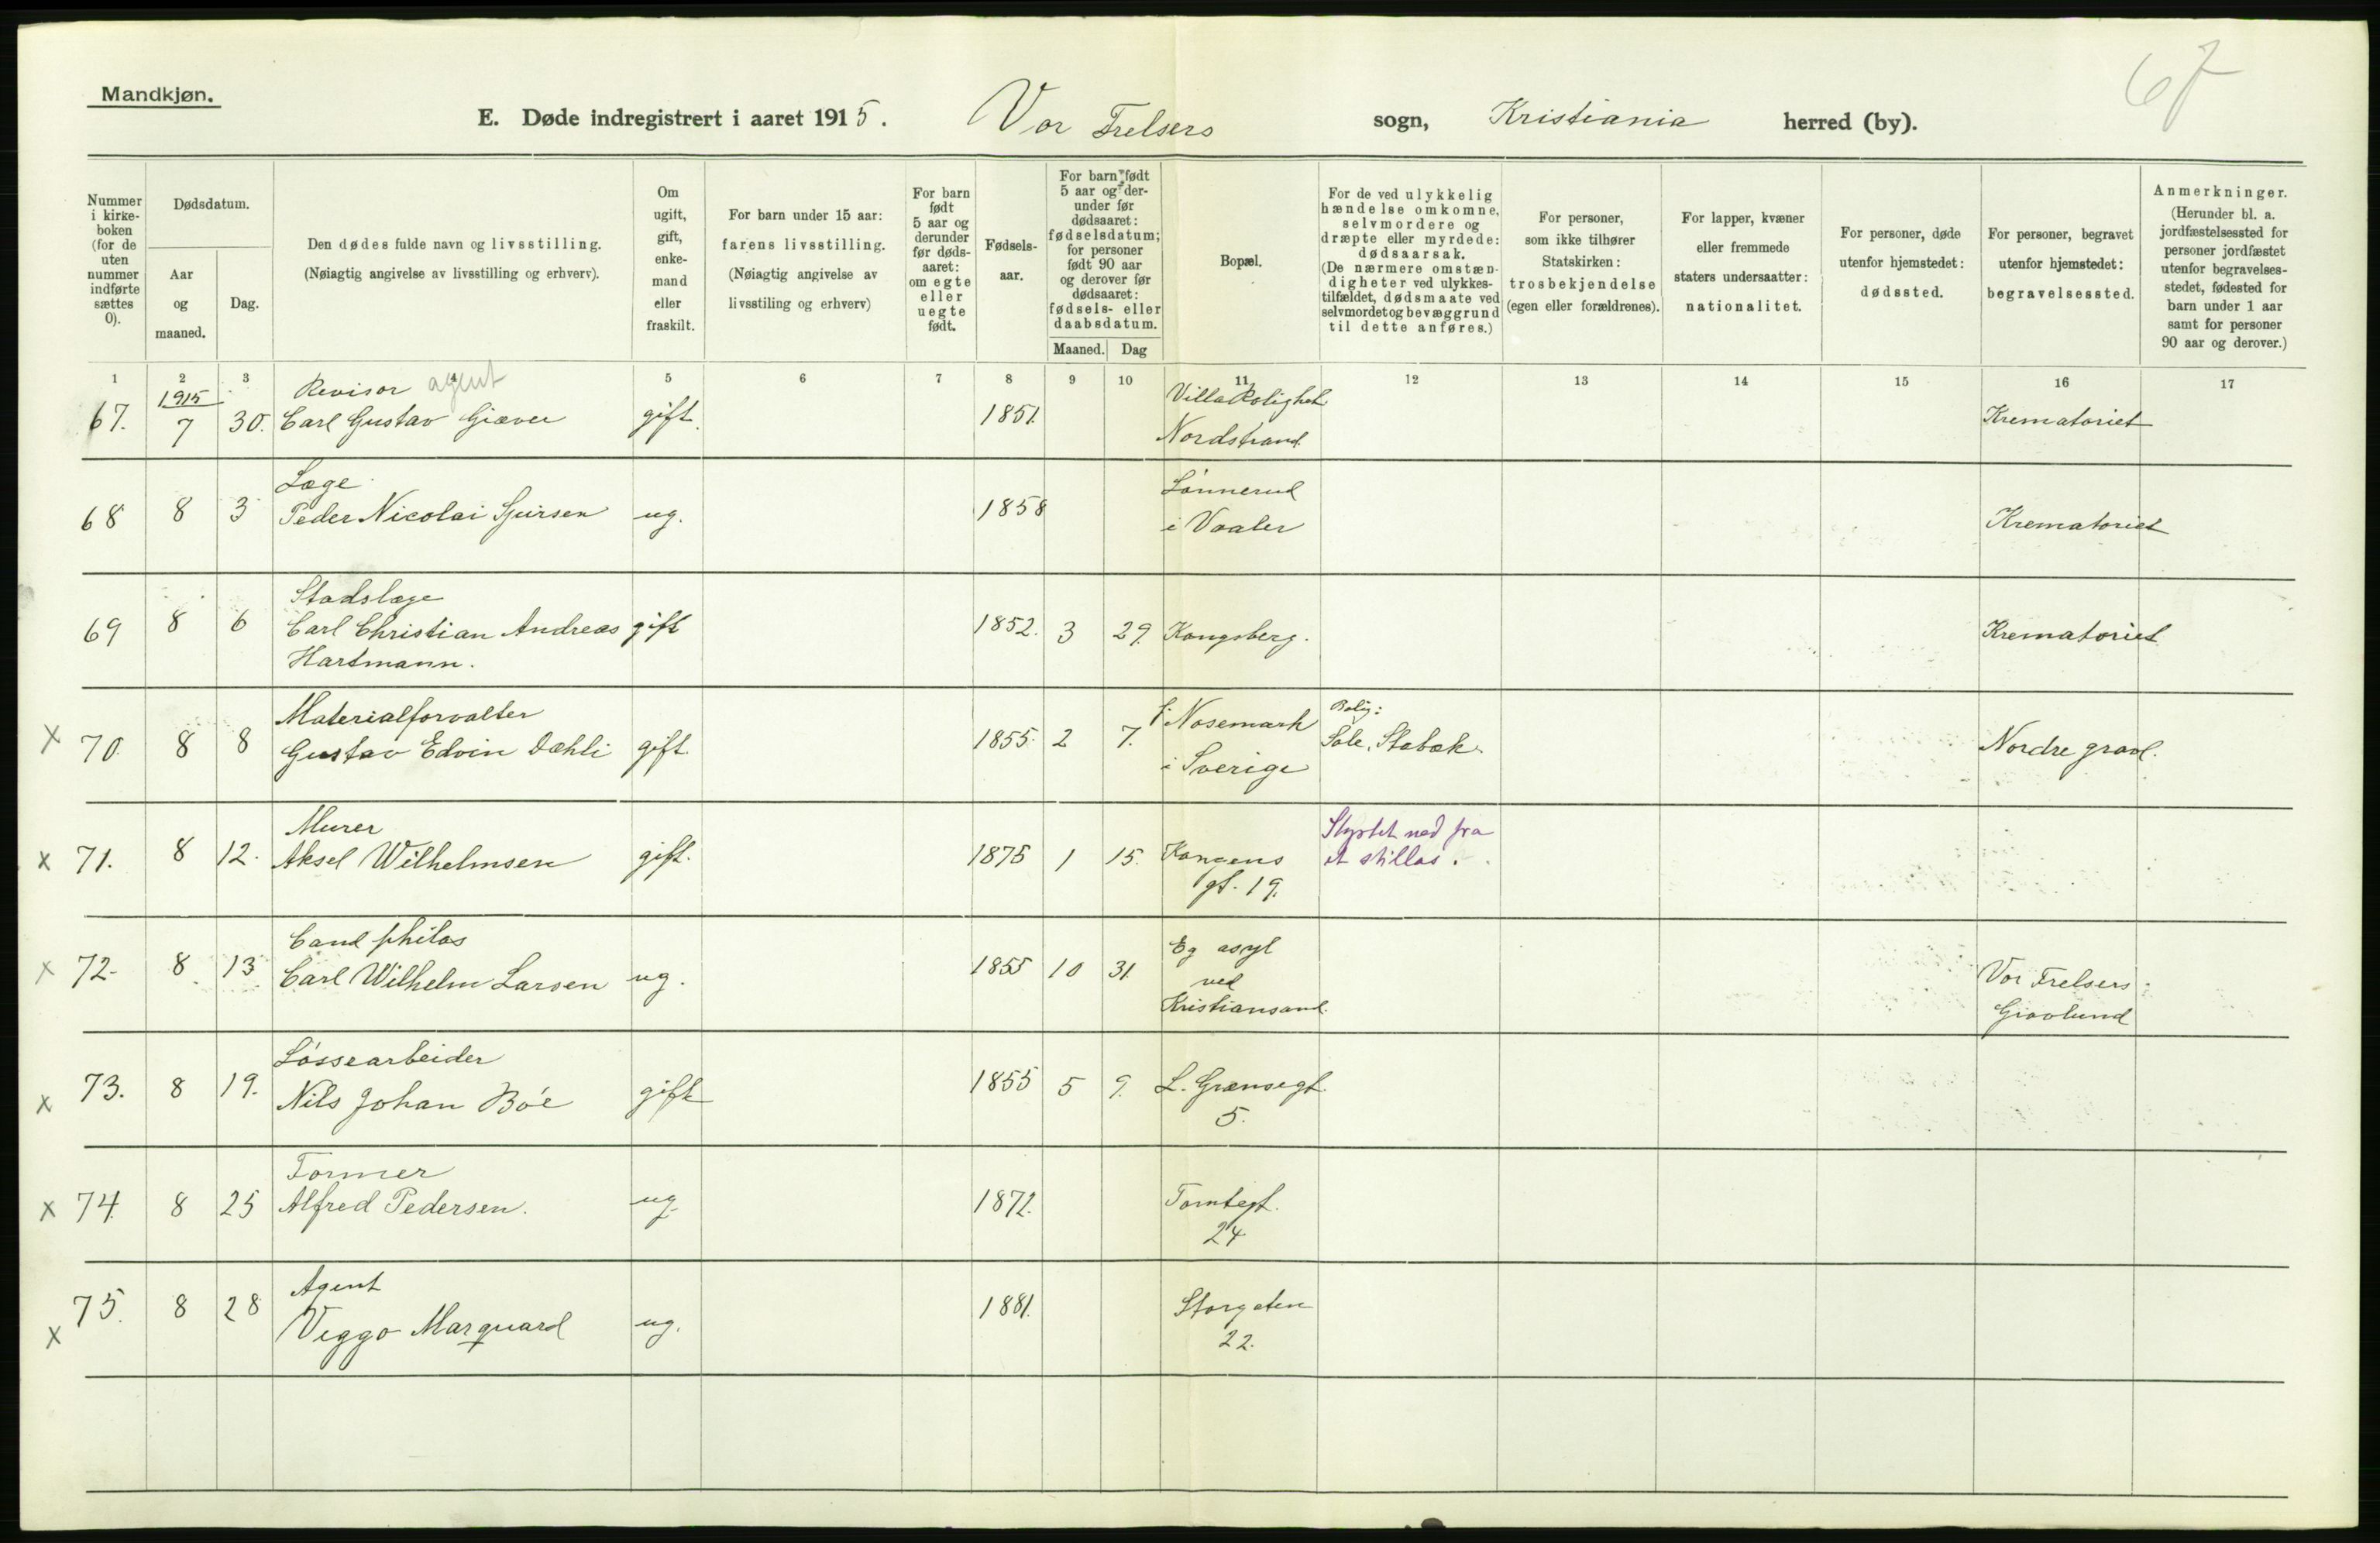 67
Mandkjøn.
E. Døde indregistrert i aaret 1915. Vor Frelsers sogn, Kristiania herred (by).
Nummer i kirke- boken (for de uten nummer indførte sættes 0).
Dødsdatum.
Aar og maaned.
Dag.
Den dødes fulde navn og livsstilling.
(Nøiagtig angivelse av livsstilling og erhverv).
Om ugift, gift, enke- mand eller fraskilt.
For barn under 15 aar:
farens livsstilling.
(Nøiagtig angivelse av
livsstiling og erhverv)
For barn født 5 aar og derunder før døds- aaret: om egte eller uegte født.
Fødsels- aar.
For barn født 5 aar og der- under før dødsaaret: fødselsdatum; for personer født 90 aar og derover før dødsaaret: fødsels- eller daabsdatum.
Maaned. Dag
Bopæl.
For de ved ulykkelig hændelse omkomne, selvmordere og dræpte eller myrdede: dødsaarsak. (De nærmere omstæn- digheter ved ulykkes- tilfældet, dødsmaate ved selvmordet og bevæggrund til dette anføres.)
For personer, som ikke tilhører Statskirken: trosbekjendelse (egen eller forældrenes).
For lapper, kvæner eller fremmede staters undersaatter: nationalitet.
For personer, døde utenfor hjemstedet: dødssted.
For personer, begravet utenfor hjemstedet: begravelsessted.
Anmerkninger. (Herunder bl. a. jordfæstelsessted for personer jordfæstet utenfor begravelses- stedet, fødested for barn under 1 aar samt for personer 90 aar og derover.)
1 2 3 4 5 6 7 8 9 10 11 12 13 14 15 16 17
1915 Revisor agent Villa Rolighet
67. 7 30. Carl Gustav Giæver gift. 1851. Nordstrand. Krematoriet
Læge Lønnerud
68 8 3 Peder Nicolai ug. 1858 i Vaaler Krematoriet
Stadslæge
69 8 6 Carl Christian Andreas gift 1852. 3 29. Kongsberg. Krematoriet
Hartmann.
Materialforvalter f. Nosemark Bolig:
x 70. 8 8 Gustav Edvin Dæhli gift. 1855. 2 7. i Sverige Sole, Stabæk. Nordre gravl.
Murer Styrtet ned fra
x 71. 8 12. Aksel Wilhelmsen gift. 1875 1 15. Kongens et stillas.
gt. 19.
Cand philos Eg asyl
x 72. 8 13 Carl Wilhelm Larsen ug. 1855 10 31. ved Vor Frelsers
Kristiansand. Gravlund
Løssearbeider
x 73. 8 19. Nils Johan Bøe gift 1855 5 9. L. Grænsegt.
5.
Former
x 74. 8 25 Alfred Pedersen. ug. 1872. Tomtegt.
24
Agent
x 75. 8 28 Viggo Marquard ug. 1881. Storgaten
22.